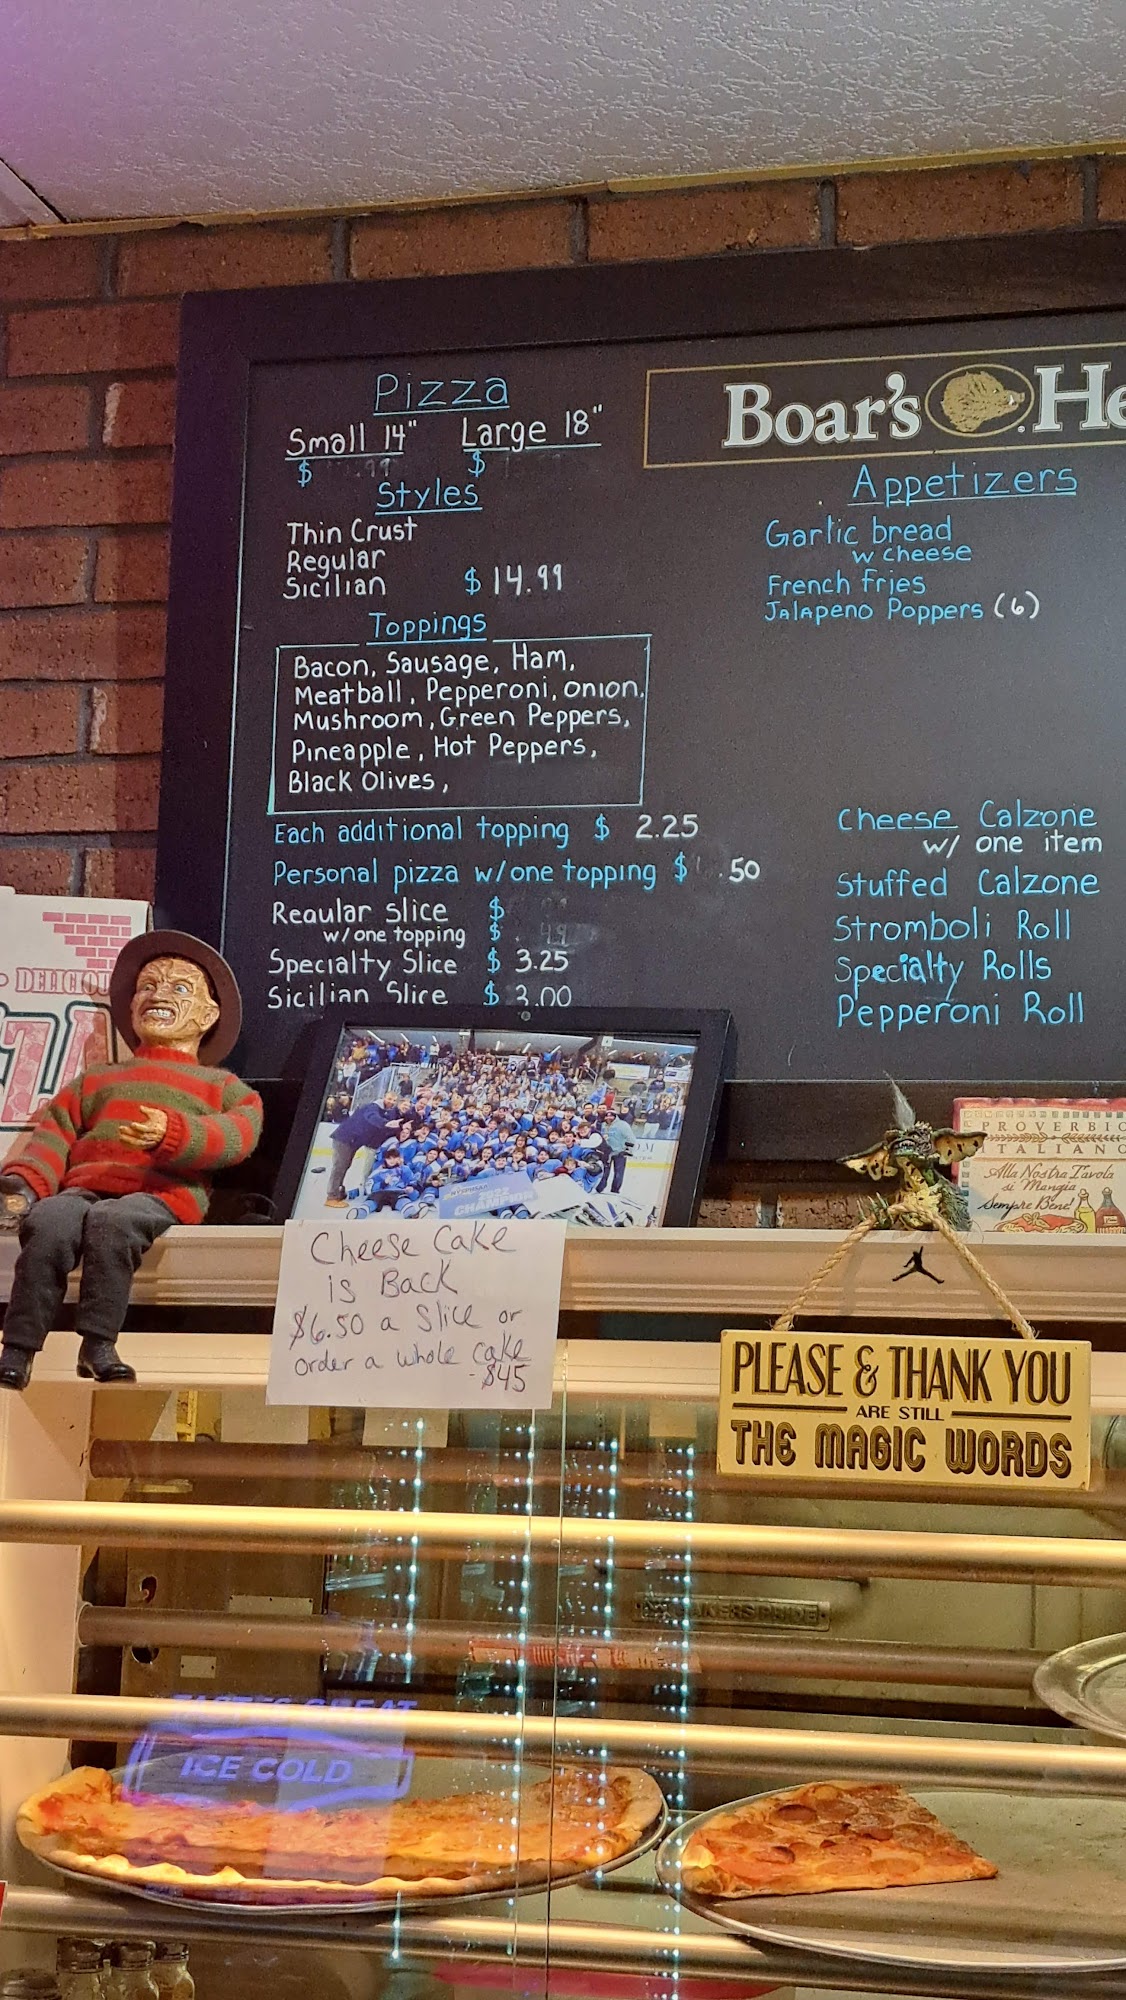 Pizza
Small 14" Large 18"
$ $
Styles
Thin Crust
Regular
Sicilian $ 14.99
Toppings
Bacon, Sausage, Ham,
Meatball, Pepperoni, onion,
Mushroom, Green Peppers,
Pineapple, Hot Peppers,
Black Olives,
Each additional topping $ 2.25
Personal pizza w/one topping $ .50
Regular Slice $
w/one topping $
Specialty Slice $ 3.25
Sicilian Slice $ 3.00
Boar's
Appetizers
Garlic bread
w cheese
French Fries
Jalapeno Poppers (6)
Cheese Calzone
w/ one item
Stuffed Calzone
Stromboli Roll
Specialty Rolls
Pepperoni Roll
DELICIOU
2022
CHAMPION
PROVERBIO
ITALIANO
Alla Nostra Tavola
si Mangia
Sempre Bene!
Cheese Cake
is Back
$6.50 a Slice or
order a whole cake
- $45
PLEASE & THANK YOU
ARE STILL
THE MAGIC WORDS
BAKERS PRIDE
TASTES GREAT
ICE COLD